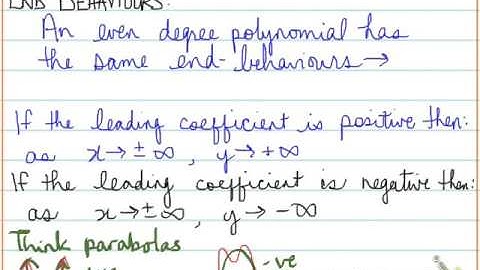 END BEHAVIOURS:
An even degree polynomial has
the same end-behaviours →
If the leading coefficient is positive then:
as x→±∞, y→+∞
If the leading coefficient is negative then:
as x→±∞, y→-∞
Think parabolas
-ve